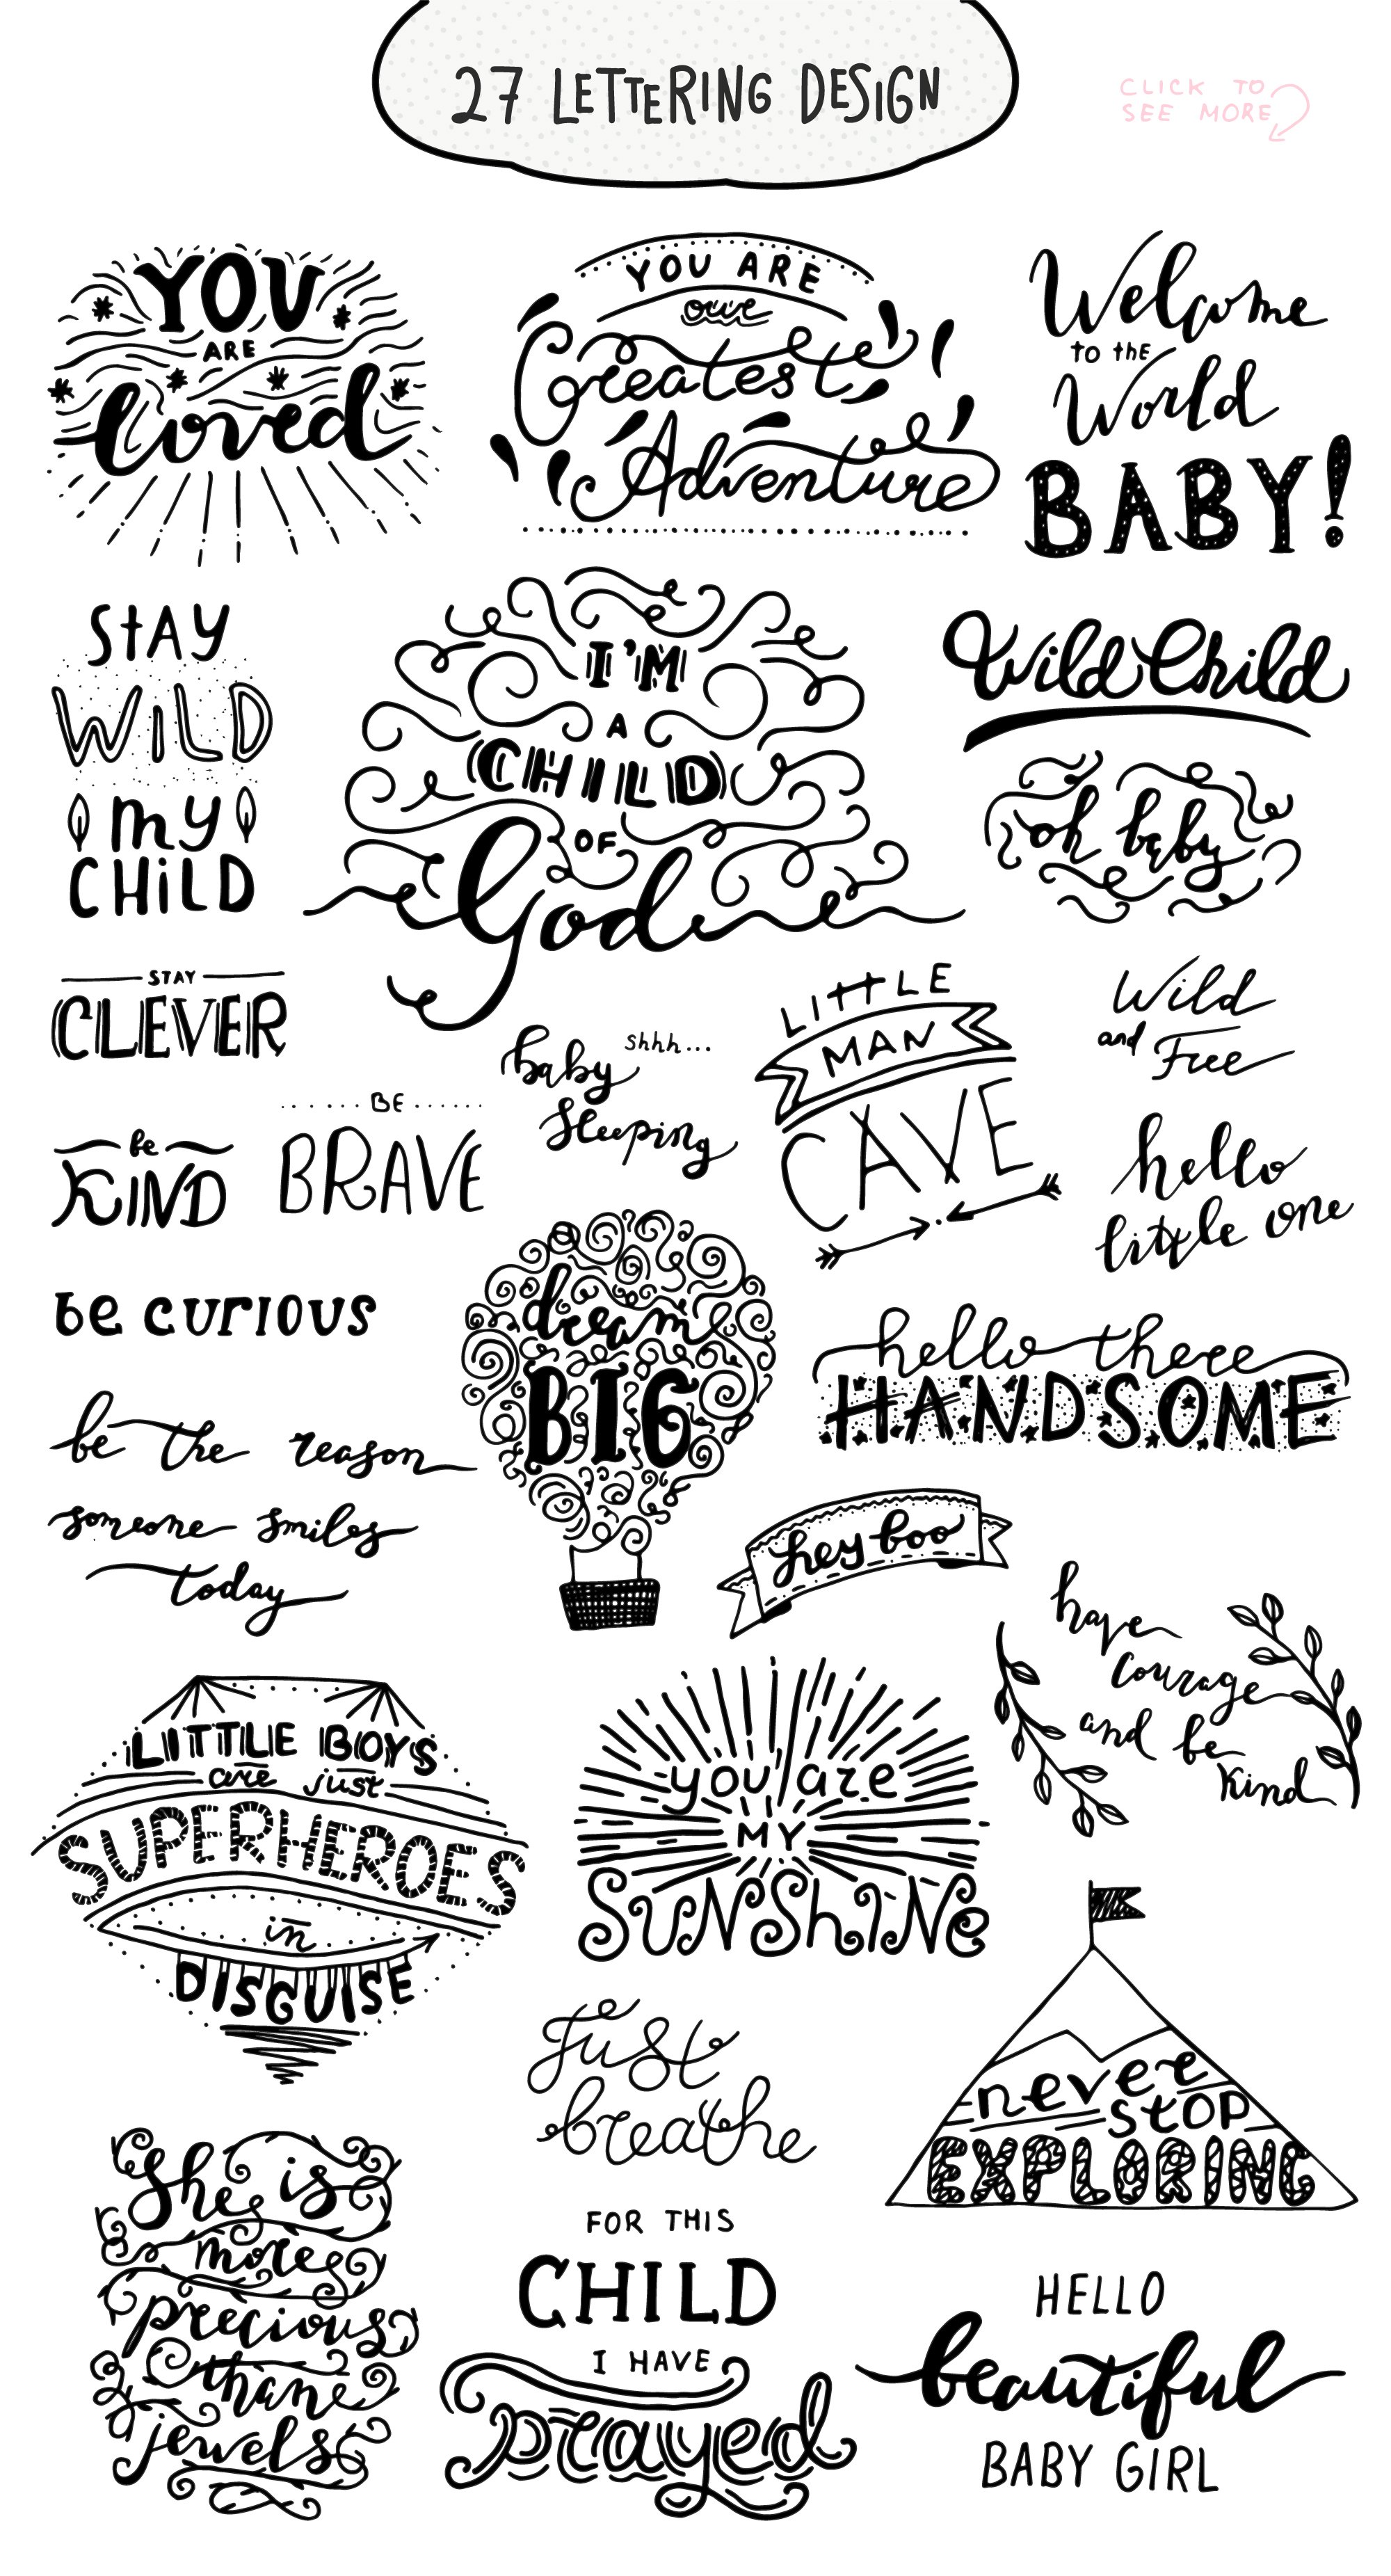 27 LETTERING DESIGN
CLICK TO
SEE MORE
YOU
ARE
loved
YOU ARE
our
Greatest
Adventure
Welcome
to the
World
BABY!
STAY
WILD
my
CHILD
I'M
A
CHILD
OF
God
Wild Child
oh baby
STAY
CLEVER
baby shhh...
sleeping
LITTLE
MAN
CAVE
Wild
and Free
be
KIND
BE
BRAVE
hello
little one
be curious
dream
BIG
hello there
HANDSOME
be the reason
someone smiles
today
hey boo
have
courage
and be
kind
LITTLE BOYS
are just
SUPERHEROES
in
DISGUISE
you are
MY
SUNShINe
Just
breathe
never
stop
EXPLORING
She is
more
precious
than
jewels
FOR THIS
CHILD
I HAVE
prayed
HELLO
beautiful
BABY GIRL